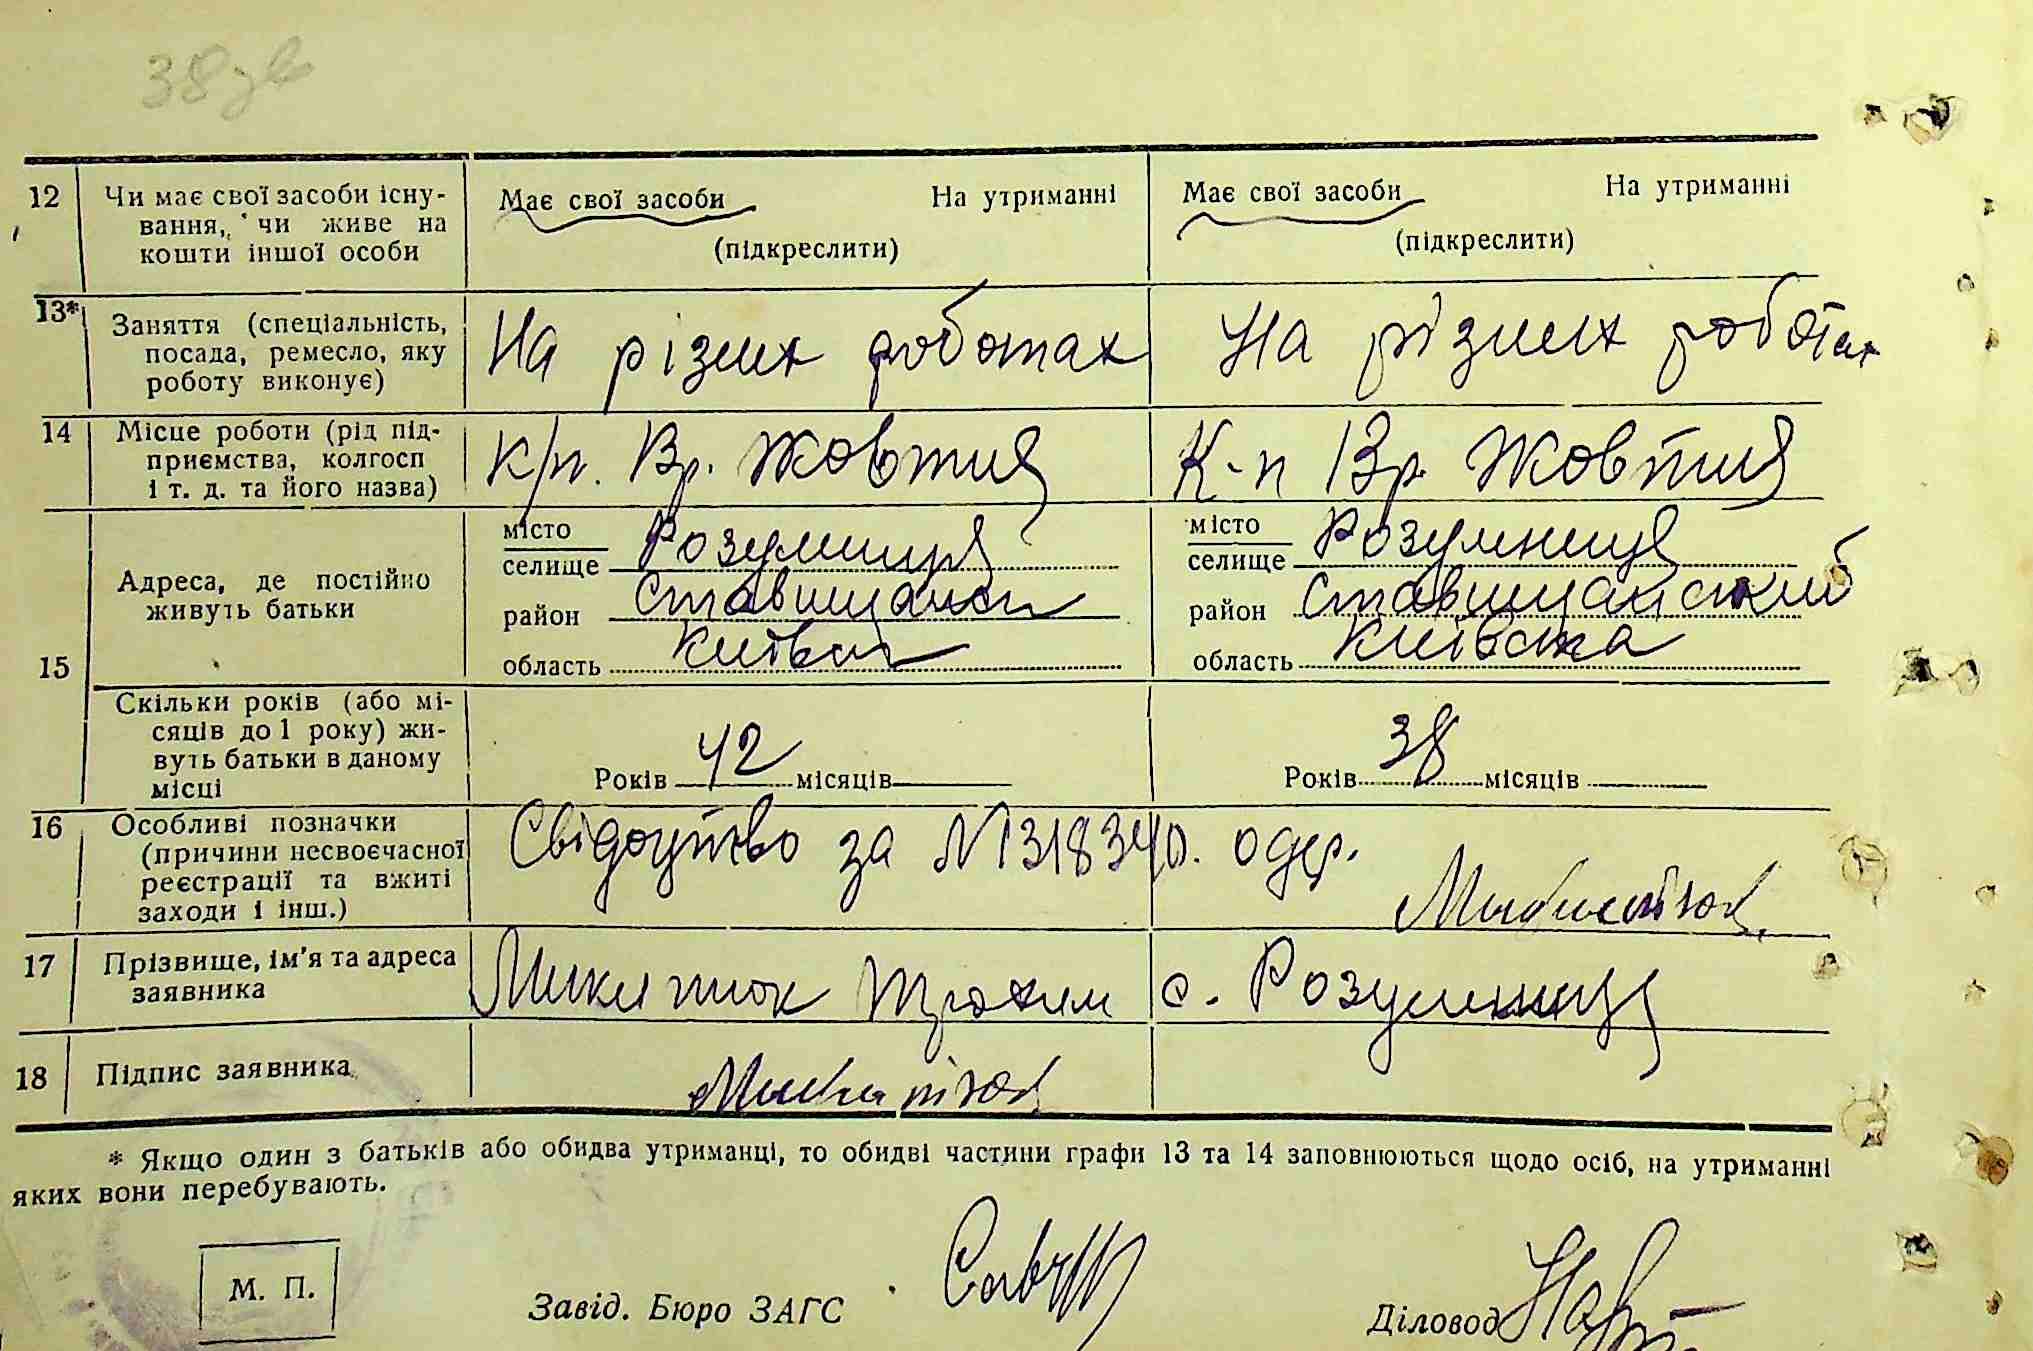 38 зв
12 Чи має свої засоби існу-
вання, чи живе на
кошти іншої особи
Має свої засоби На утриманні
(підкреслити)
Має свої засоби На утриманні
(підкреслити)
13* Заняття (спеціальність,
посада, ремесло, яку
роботу виконує)
На різних роботах
На різних роботах
14 Місце роботи (рід під-
приємства, колгосп
і т. д. та його назва)
к/п. Вр. Жовтня
К-п Вр. Жовтня
15 Адреса, де постійно
живуть батьки
місто
селище Розумниця
район Ставищанськ
область Київськ
місто
селище Розумниця
район Ставищанський
область Київська
Скільки років (або мі-
сяців до 1 року) жи-
вуть батьки в даному
місці
Років 42 місяців
Років 38 місяців
16 Особливі позначки
(причини несвоєчасної
реєстрації та вжиті
заходи і інш.)
Свідоцтво за № 318340. одер.
Микитюк
17 Прізвище, ім'я та адреса
заявника
Микитюк Трохим с. Розумниця
18 Підпис заявника
Микитюк
* Якщо один з батьків або обидва утриманці, то обидві частини графи 13 та 14 заповнюються щодо осіб, на утриманні
яких вони перебувають.
М. П.
Завід. Бюро ЗАГС
Діловод